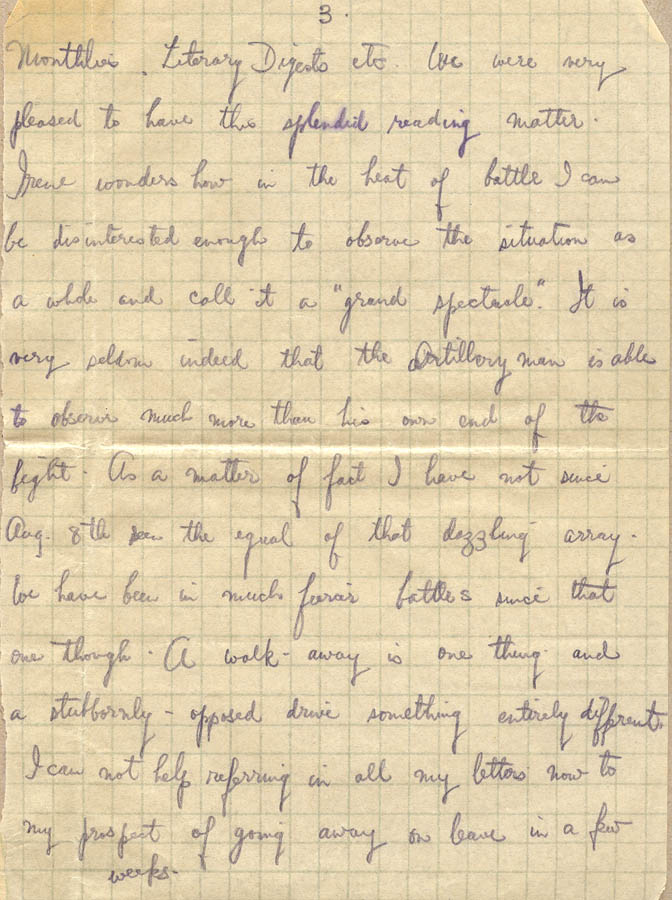 3.
Monthlies, Literary Digests etc. We were very
pleased to have this splendid reading matter.
Irene wonders how in the heat of battle I can
be disinterested enough to observe the situation as
a whole and call it a "grand spectacle". It is
very seldom indeed that the Artillery man is able
to observe much more than his own end of the
fight. As a matter of fact I have not since
Aug. 8th seen the equal of that dazzling array.
We have been in much fiercer battles since that
one though. A walk-away is one thing and
a stubbornly-opposed drive something entirely different.
I can not help referring in all my letters now to
my prospect of going away on leave in a few
weeks.